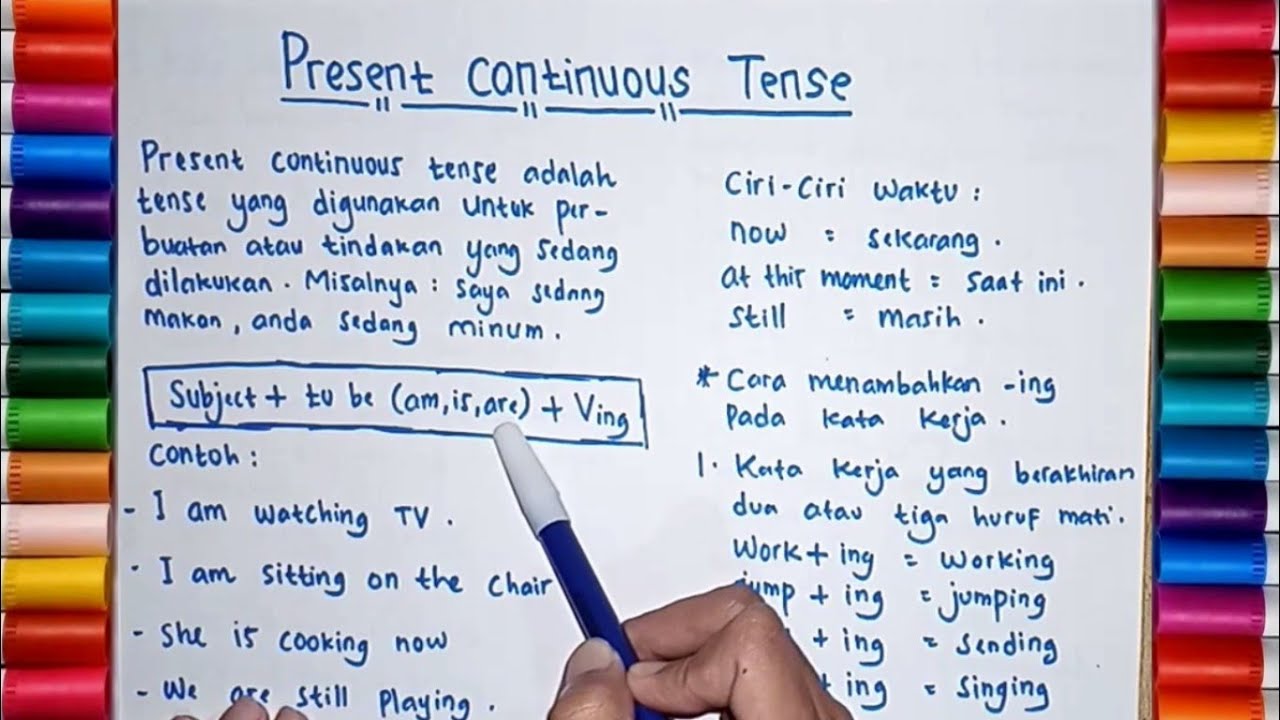 Present Continuous Tense
Present continuous tense adalah
tense yang digunakan untuk per-
buatan atau tindakan yang sedang
dilakukan. Misalnya : saya sedang
makan, anda sedang minum.
Subject + to be (am, is, are) + Ving
Contoh :
- I am watching TV.
- I am sitting on the chair
- She is cooking now
- We are still playing.
Ciri-Ciri waktu :
now = sekarang.
at this moment = saat ini.
still = masih.
* Cara menambahkan -ing
pada kata kerja.
1. Kata kerja yang berakhiran
dua atau tiga huruf mati.
Work + ing = working
jump + ing = jumping
+ ing = sending
+ ing = singing